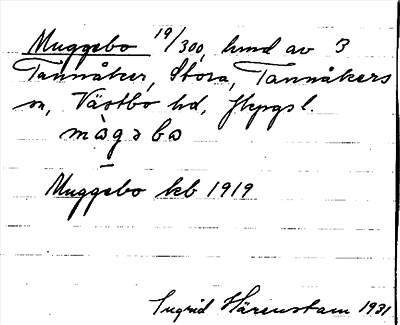 Muggebo 19/300, hmd av 3
Tannåker, Stora, Tannåkers
sn, Västbo hd, Jkpgs l.
màgəbo
Muggebo kb 1919
Ingrid Härenstam 1931